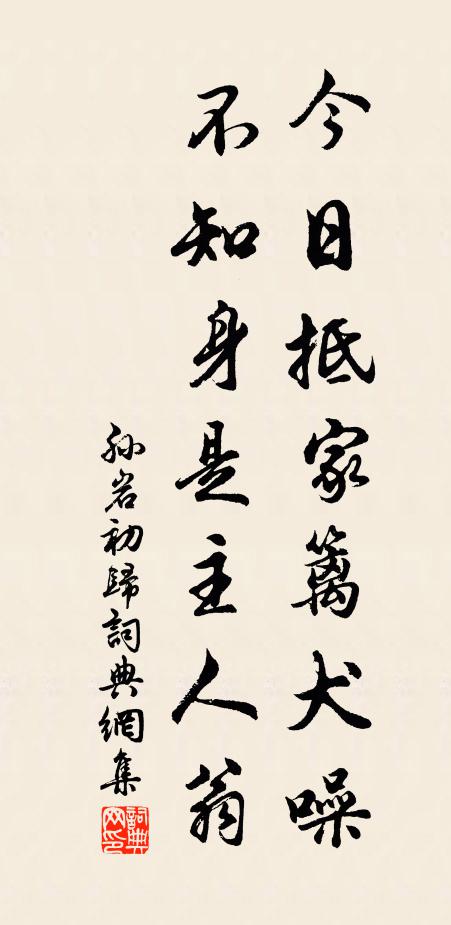 今日抵家篱犬噪
不知身是主人翁
孙岩初歸詞典網集
詞典
网印